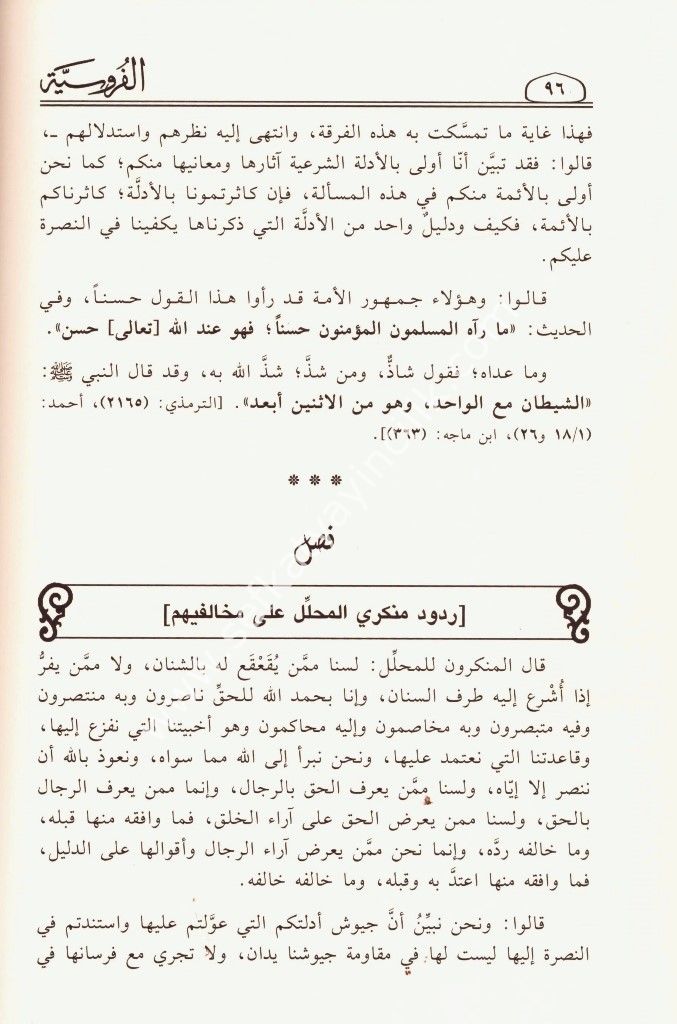 ٩٦
الفُروسيَّة
فهذا غاية ما تمسَّكت به هذه الفرقة، وانتهى إليه نظرهم واستدلالهم ـ،
قالوا: فقد تبيَّن أنّا أولى بالأدلة الشرعية آثارها ومعانيها منكم؛ كما نحن
أولى بالأئمة منكم في هذه المسألة، فإن كاثرتمونا بالأدلَّة؛ كاثرناكم
بالأئمة، فكيف ودليلٌ واحد من الأدلَّة التي ذكرناها يكفينا في النصرة
عليكم.
قالوا: وهؤلاء جمهور الأمة قد رأوا هذا القول حسناً، وفي
الحديث: «ما رآه المسلمون المؤمنون حسناً؛ فهو عند الله [تعالى] حسن».
وما عداه؛ فقول شاذٌّ، ومن شذَّ؛ شذَّ الله به، وقد قال النبي ﷺ:
«الشيطان مع الواحد، وهو من الاثنين أبعد». [الترمذي: (٢١٦٥)، أحمد:
(١٨/١ و٢٦)، ابن ماجه: (٣٦٣)].
* * *
فصل
[ردود منكري المحلِّل على مخالفيهم]
قال المنكرون للمحلِّل: لسنا ممَّن يُقَعْقَع له بالشنان، ولا ممَّن يفرُّ
إذا أُشْرع إليه طرف السنان، وإنا بحمد الله للحقِّ ناصرون وبه منتصرون
وفيه متبصرون وبه مخاصمون وإليه محاكمون وهو أخبيتنا التي نفزع إليها،
وقاعدتنا التي نعتمد عليها، ونحن نبرأ إلى الله مما سواه، ونعوذ بالله أن
ننصر إلا إيّاه، ولسنا ممَّن يعرف الحق بالرجال، وإنما ممن يعرف الرجال
بالحق، ولسنا ممن يعرض الحق على آراء الخلق، فما وافقه منها قبله،
وما خالفه ردَّه، وإنما نحن ممَّن يعرض آراء الرجال وأقوالها على الدليل،
فما وافقه منها اعتدَّ به وقبله، وما خالفه خالفه.
قالوا: ونحن نبيِّنُ أنَّ جيوش أدلتكم التي عوَّلتم عليها واستندتم في
النصرة إليها ليست لها في مقاومة جيوشنا يدان، ولا تجري مع فرسانها في